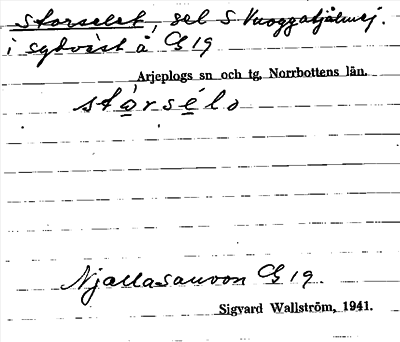 Storselet, sel S Vuoggatjålmej.
i sydväst å G 19
Arjeplogs sn och tg, Norrbottens län.
stårsélə
Njallasauvon G 19.
Sigvard Wallström, 1941.